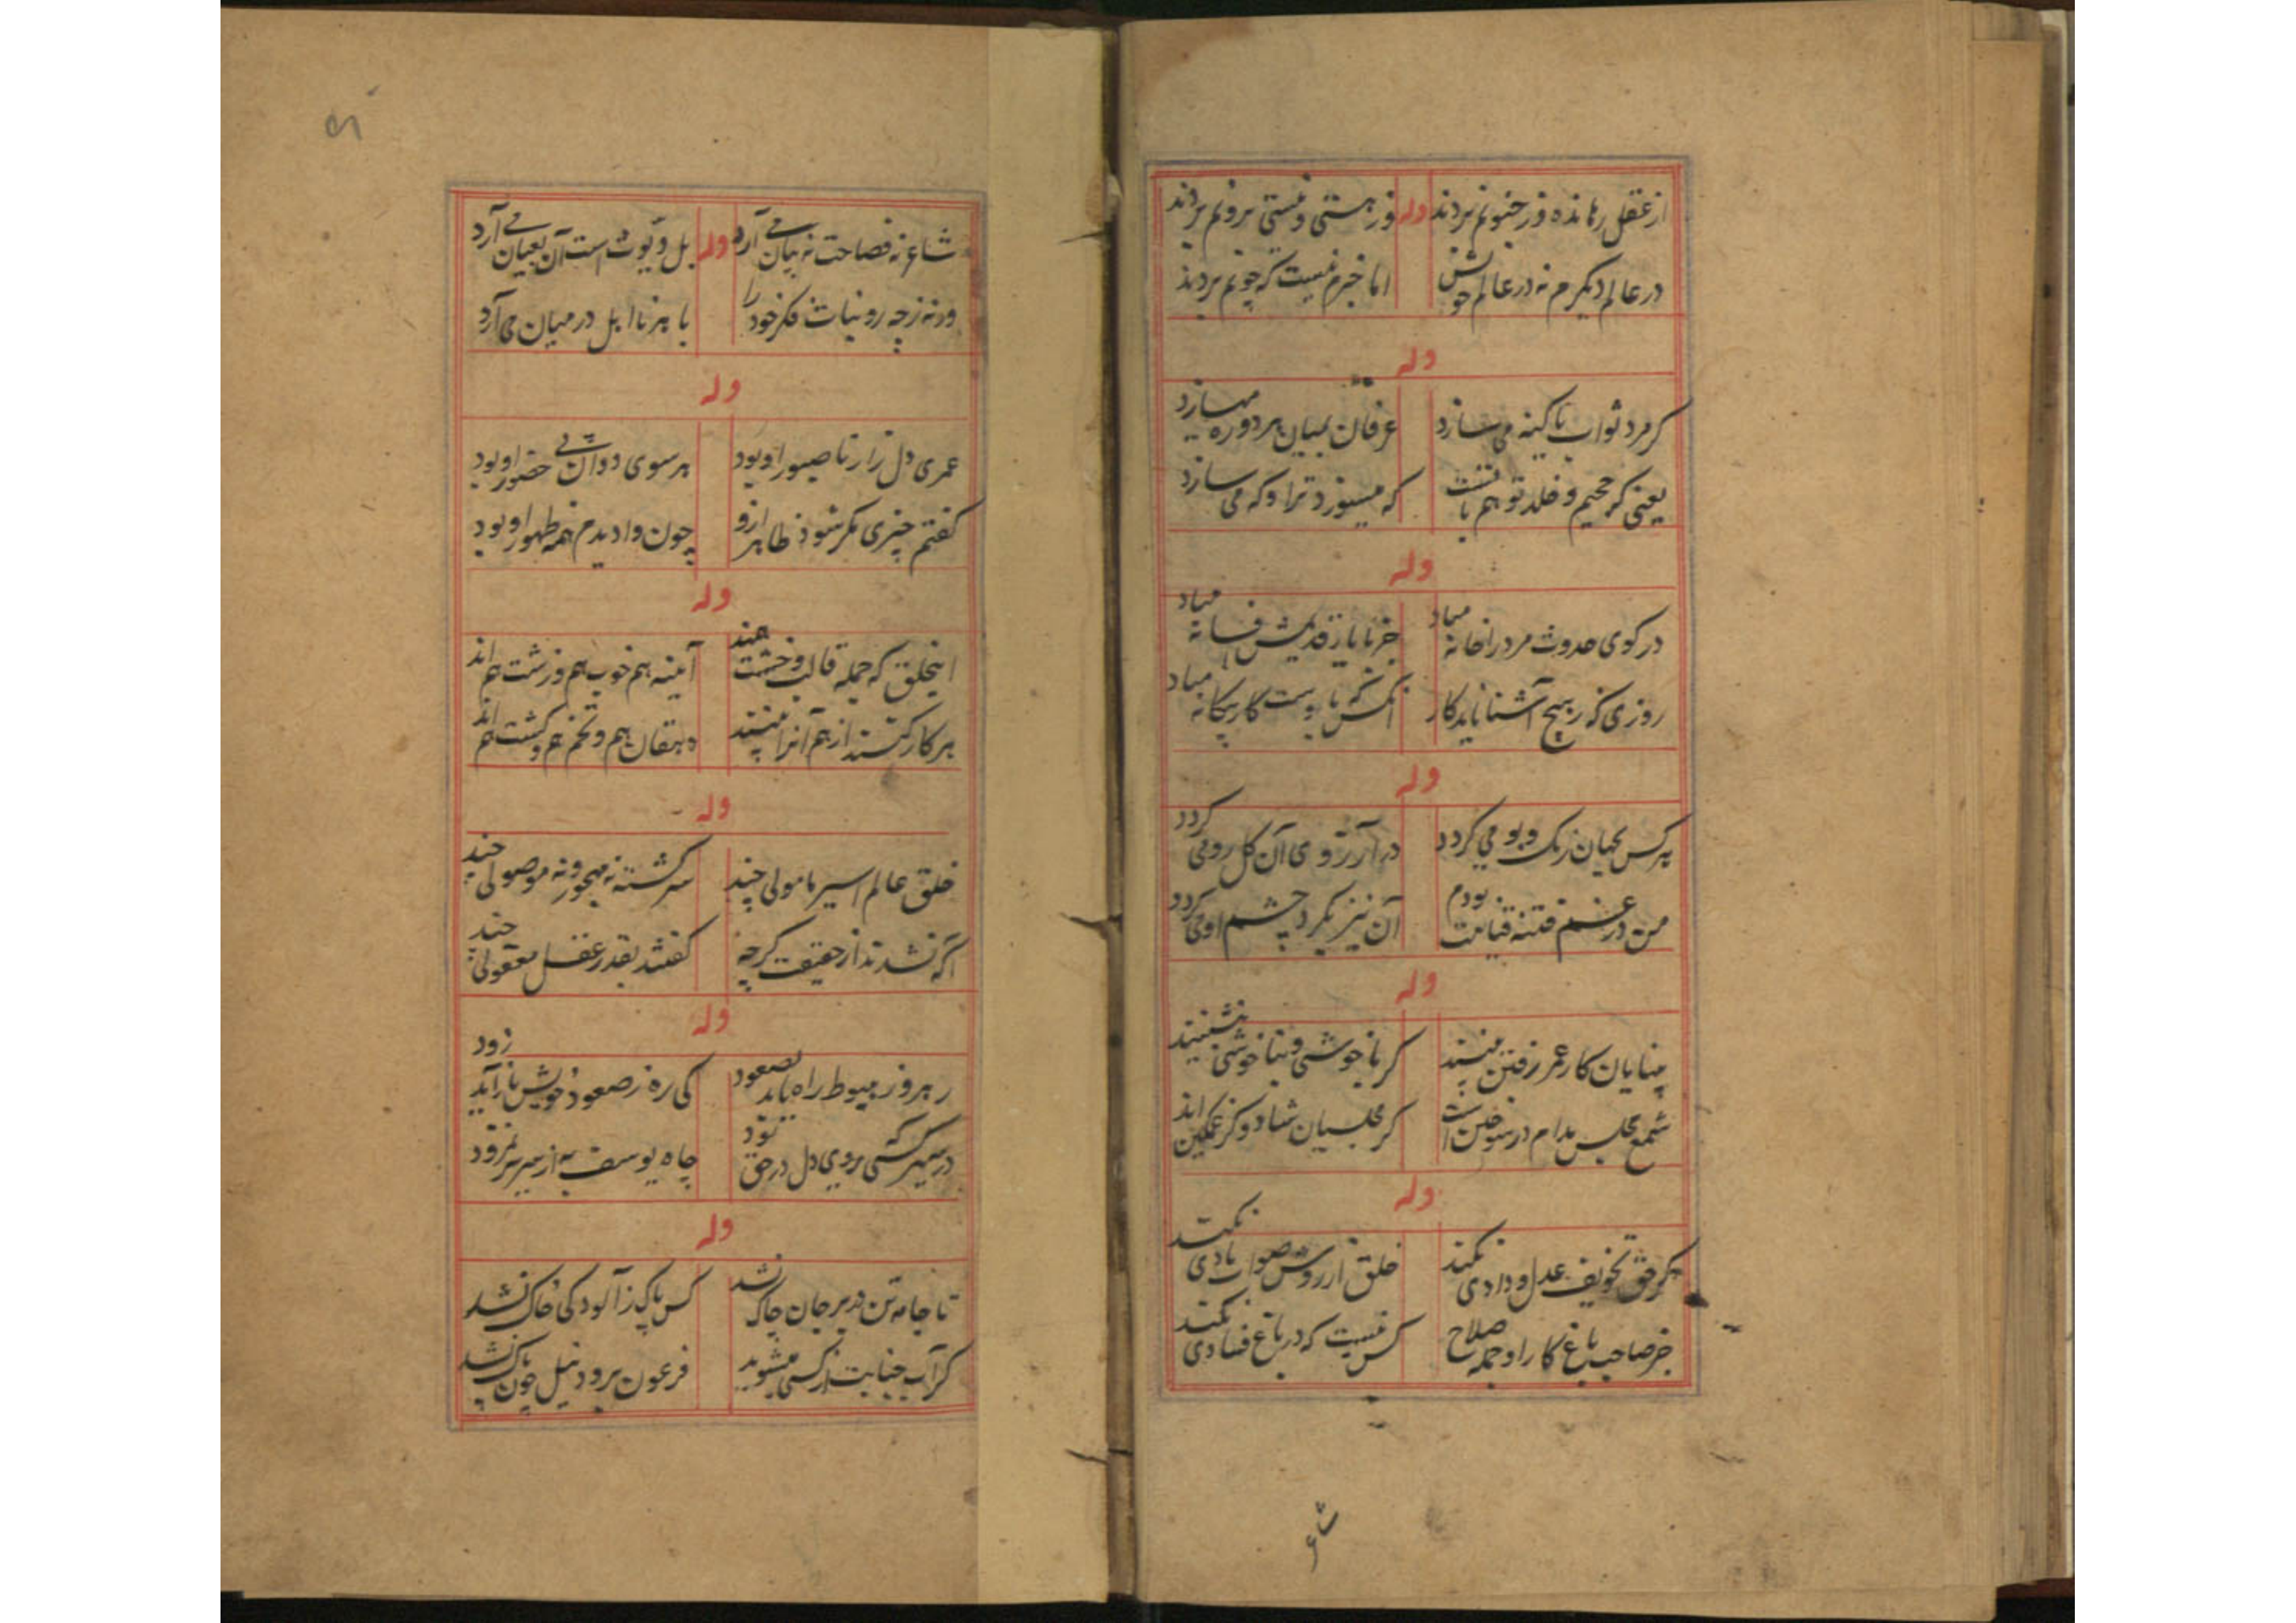 از عقل رهانده در جنونم بردند وله وز هستی و نیستی برونم بردند
در عالم دیگرم نه در عالم خویش اما خبرم نیست که چونم بردند
وله
گر مرد ثواب با کینه می سازد عرفان بمیان هر دو ره میسازد
یعنی که جحیم و خلد تو هم با تست که میسوزد ترا و که می سازد
وله
در کوی حدوث مرد را خانه مباد جز با یار قدیمش افسانه مباد
روزی که ز هیچ آشنا ناید کار آنکس که با وست کار بیگانه مباد
وله
هر کس بجهان رنگ و بو می گردد در آرزوی آن گل رو می گردد
من در غم فتنه قیامت بودم آن نیز بگرد چشم او می گردد
وله
بینایان کار عمر رفتن بینند گر با خوشی و بنا خوشی بنشینند
شمع مجلس مدام در سوختن است گر مجلسیان شاد و گر غمگین اند
وله
گر حق تخویف عدل و دادی نکند خلق از روش صواب یادی نکند
جز صاحب باغ کار او جمله صلاح کس نیست که در باغ فسادی نکند
شاعر
شاعر نه فصاحت نه بیان می آرد وله بل دیوث است آن بعیان می آرد
ورنه ز چه رو بنات فکر خود را با هر نااهل در میان می آرد
وله
عمری دل زار ناصبور او بود هر سوی دوان پی حضور او بود
گفتم چیزی مگر شود ظاهر ازو چون وا دیدم همه ظهور او بود
وله
اینخلق که جمله قالب و خشت همند آینه هم خوب هم و زشت هم اند
هر کار کنند از هم آنرا بینند دهقان هم و تخم هم و کشت هم اند
وله
خلق عالم اسیر مامولی چند سرگشته نه مهجور و نه موصولی چند
آگه نشدند از حقیقت گرچه گفتند بقدر عقل معقولی چند
وله
رهرو ز هبوط راه یابد بصعود کی ره ز صعود خویش باز آید زود
در سیر کسی که روی دل در حق بود چاه یوسف به از سریر نمرود
وله
تا جامه تن در بر جان چاک نشد کس پاک ز آلودگی خاک نشد
گر آب جنابت از کسی میشوید فرعون برود نیل چون پاک نشد